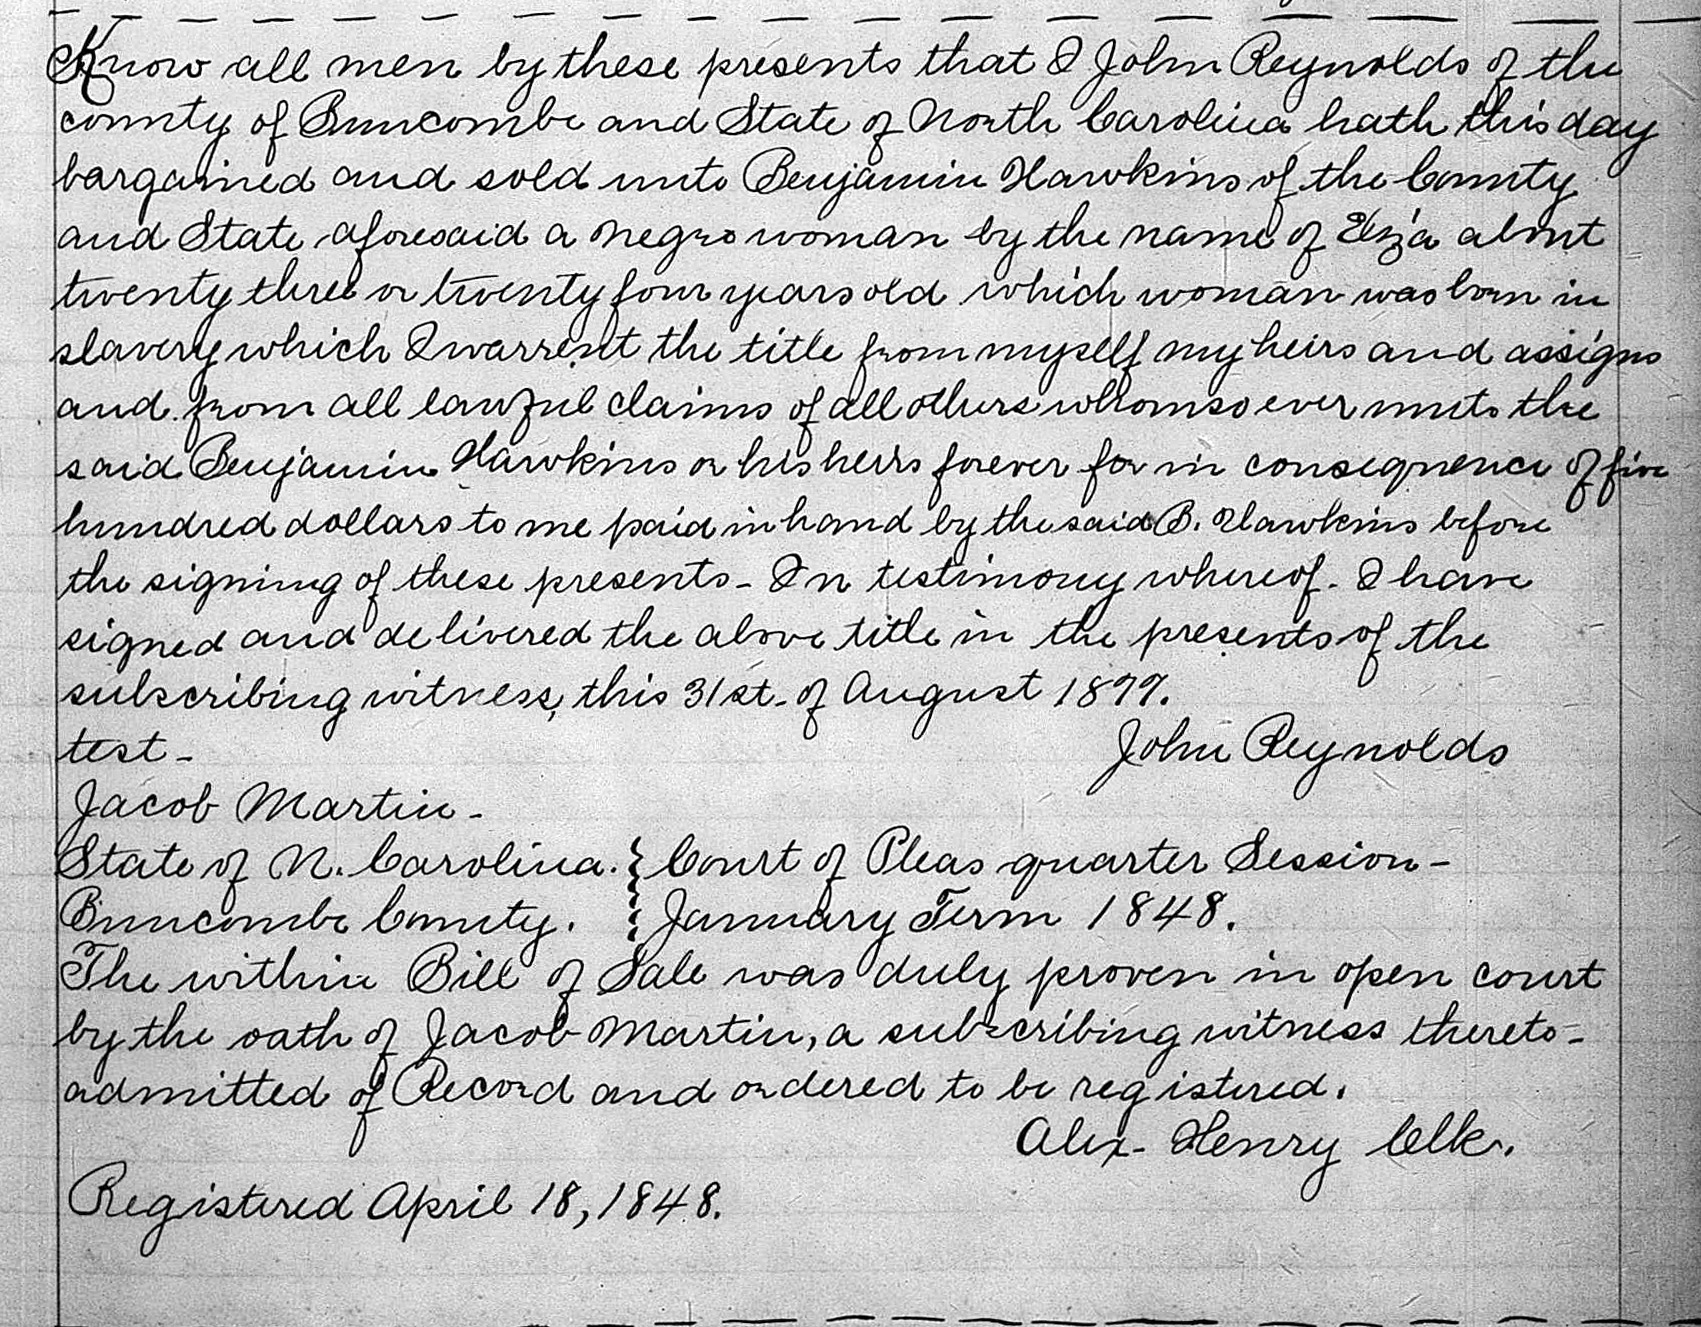 Know all men by these presents that I John Reynolds of the
county of Buncombe and State of North Carolina hath this day
bargained and sold unto Benjamin Hawkins of the County
and State aforesaid a negro woman by the name of Eliza about
twenty three or twenty four years old which woman was born in
slavery which I warrent the title from myself my heirs and assigns
and from all lawful claims of all others whomsoever unto the
said Benjamin Hawkins or his heirs forever for in consequence of five
hundred dollars to me paid in hand by the said B. Hawkins before
the signing of these presents - In testimony whereof - I have
signed and delivered the above title in the presents of the
subscribing witness, this 31st. of August 1877.
test - John Reynolds
Jacob Martin -
State of N. Carolina. } Court of Pleas quarter Session -
Buncombe County. } January Term 1848.
The within Bill of Sale was duly proven in open court
by the oath of Jacob Martin, a subscribing witness thereto -
admitted of Record and ordered to be registered.
Alex - Henry Clk.
Registered April 18, 1848.